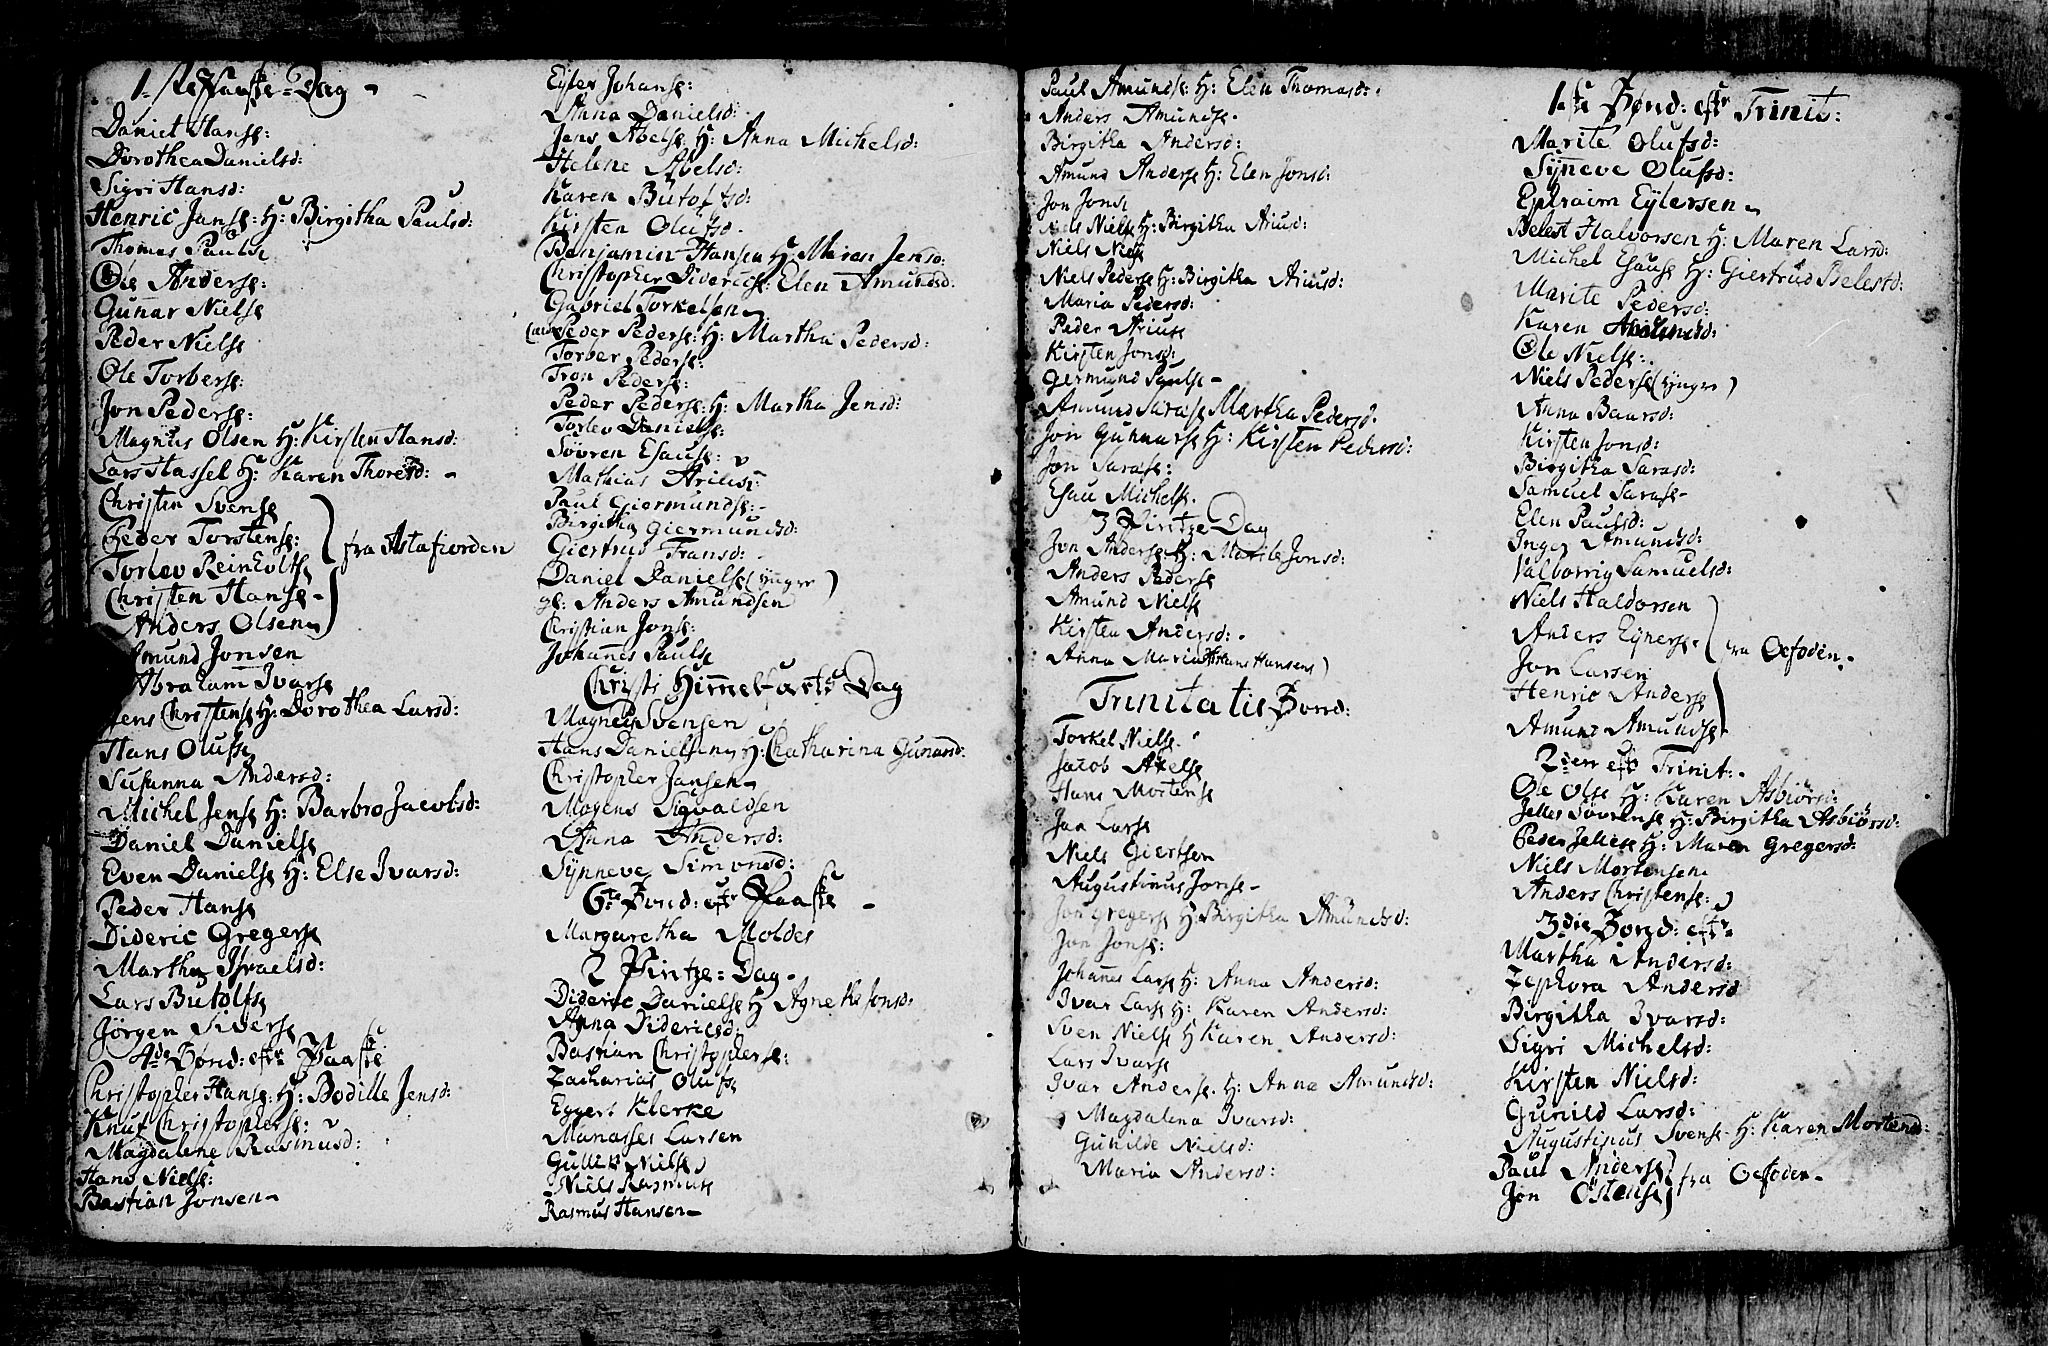 1. ste Paaske=Dag -
Daniel Hanse:
Dorothea Danielsd:
Sigri Hansd:
Henric Janse: H: Birgitha Paulsd:
Thomas Paulse
Ole Anderse:
Gunnar Nielse
Peder Nielse
Ole Torberse:
Jon Pederse:
Magnus Olsen H: Kirsten Hansd:
Lars Hassel H: Karen Thoresd: -
Christen Svense
Peder Torstense:
Torlev Reinholtse
fra Astafiorden
Christen Hanse -
Anders Olsen
Amund Jonsen
Abraham Ivarse
Jens Christense H: Dorothea Larsd:
Hans Olufse
Susanna Andersd:
Michel Jense H: Barbro Jacobsd:
Daniel Danielse
Even Danielse H: Else Ivarsd:
Peder Hanse
Dideric Gregerse
Martha Israelsd:
Lars Butolfse
Jörgen Siverse
4de Sønd: eftr Paaske
Christopher Hanse: H: Bodille Jensd:
Knut Christopherse:
Magdalene Rasmusd:
Hans Nielse:
Bastian Jonsen -
Eyler Johanse:
Anna Danielsd:
Jens Abelse H: Anna Michelsd:
Helene Abelsd:
Karen Butolfsd:
Kirsten Olufsd.
Benjamin Hansen H: Maren Jensd:
Christopher Didericse: Elen Amundsd.
Gabriel Torkelsen
Peder Pederse: H: Martha Pedersd:
Torber Pederse:
Tron Pederse:
Peder Pederse: H: Martha Jensd:
Torlev Danielse:
Sövren Esause:
Mathias
Paul Giermundse: -
Birgitha Giermundsd:
Giertrud Fransd:
Daniel Danielse (ynger)
gl: Anders Amundsen
Christian Jonse:
Johannes Paulse
Christi Himmelfarts Dag
Magnus Svensen
Hans Danielsen H: Chatharina Gunarsd:
Christopher Jansen
Mogens Sigvaldsen
Anna Andersd:
Synneve Simonsd:
6te Sønd: eftr Paaske -
Margaretha Moldes
2 Pintze=Dag -
Dideric Danielse H Agnethe Jonsd:
Anna Didericsd:
Bastian Christopherse:
Zacharias Olufse
Eggert Klerke
Manasses Larsen
Gullik Nielse
Niels Rasmuse
Rasmus Hansen -
Paul Amundse: H: Elen Thomasd:
Anders Amundse.
Birgitha Andersd:
Amund Anderse H: Elen Jonsd:
Jon Jonse
Niels Nielse H: Birgitha Ariusd:
Niels Nielse
Niels Pederse H: Birgitha Ariusd:
Maria Pedersd:
Peder Ariuse
Kirsten Jonsd:
Germund Paulse -
Amund Sarase Martha Pedersd.
Jon Gunnarse H: Kirsten Pedersd:
Jon Sarase:
Esau Michelse.
3 Pintze Dag
Jon Anderse H: Marite Jonsd:
Anders Pederse
Amund Nielse
Kirsten Andersd:
Anna Maria Hans Hansens)
Trinitatis Sønd:
Torkel Nielse.
Jacob Axelse
Hans Mortense
Jan Larse
Niels Giertsen
Augustinus Jonse -
Jon Gregerse H: Birgitha Amundsd:
Jon Jonse:
Johannes Larse H: Anna Andersd:
Ivar Larse H: Karen Andersd:
Sven Nielse H Karen Andersd:
Lars Ivarse
Ivar Anderse. H: Anna Amundsd:
Magdalena Ivarsd:
Gunilde Nielsd:
Maria Andersd:
1ste Sønd: eftr Trinit:
Marite Olufsd:
Synneve Olufsd:
Ephraim Eylersen
Belest Halvorsen H: Maren Larsd:
Michel Esause H: Giertrud Belestd:
Marite Pedersd:
Karen
Ole Nielse:
Niels Pederse (ynger)
Anna Baarsd:
Kirsten Jonsd:
Birgitha Sarasd:
Samuel Sarase -
Elen Paulsd:
Inger Amundsd:
Valborrig Samuelsd:
Niels Haldorsen
Anders Eynerse.
fra Oefoden.
Jon Larsen
Henric Anderse
Amund Amundse
2den eftr Trinit:
Ole Olse H: Karen Asbiörsd:
Jelles Sövrense H: Birgitha Asbiörsd:
Peder Jellese H: Maren Gregersd:
Niels Mortensen
Anders Christense:
3die Sønd: eftr
Martha Andersd:
Zephora Andersd
Birgitha Ivarsd:
Sigri Michelsd:
Kirsten Nielsd:
Gunild Larsd:
Augustinus Svense H: Karen Mortensd:
Paul Anderse
fra Oefoden -
Jon Östense